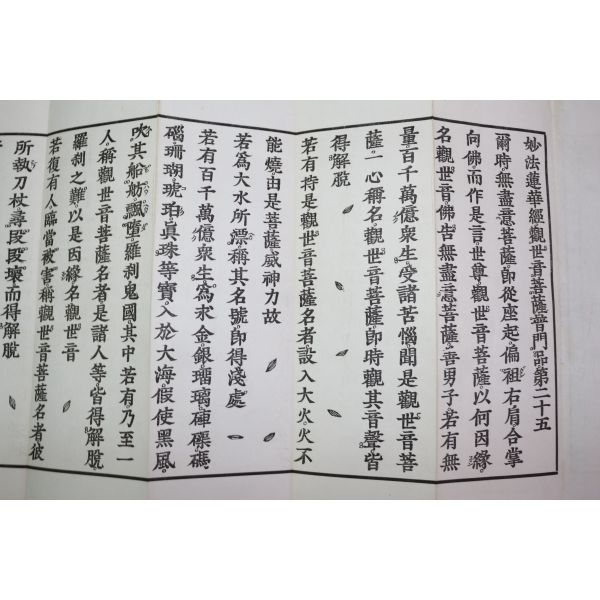 妙法蓮華經觀世音菩薩普門品第二十五
爾時無盡意菩薩卽從座起偏袒右肩合掌
向佛而作是言世尊觀世音菩薩以何因緣
名觀世音佛告無盡意菩薩善男子若有無
量百千萬億衆生受諸苦惱聞是觀世音菩
薩一心稱名觀世音菩薩卽時觀其音聲皆
得解脫
若有持是觀世音菩薩名者設入大火火不
能燒由是菩薩威神力故
若爲大水所漂稱其名號卽得淺處
若有百千萬億衆生爲求金銀瑠璃硨磲碼
碯珊瑚琥珀眞珠等寶入於大海假使黑風
吹其船舫飄墮羅刹鬼國其中若有乃至一
人稱觀世音菩薩名者是諸人等皆得解脫
羅刹之難以是因緣名觀世音
若復有人臨當被害稱觀世音菩薩名者彼
所執刀杖尋段段壞而得解脫